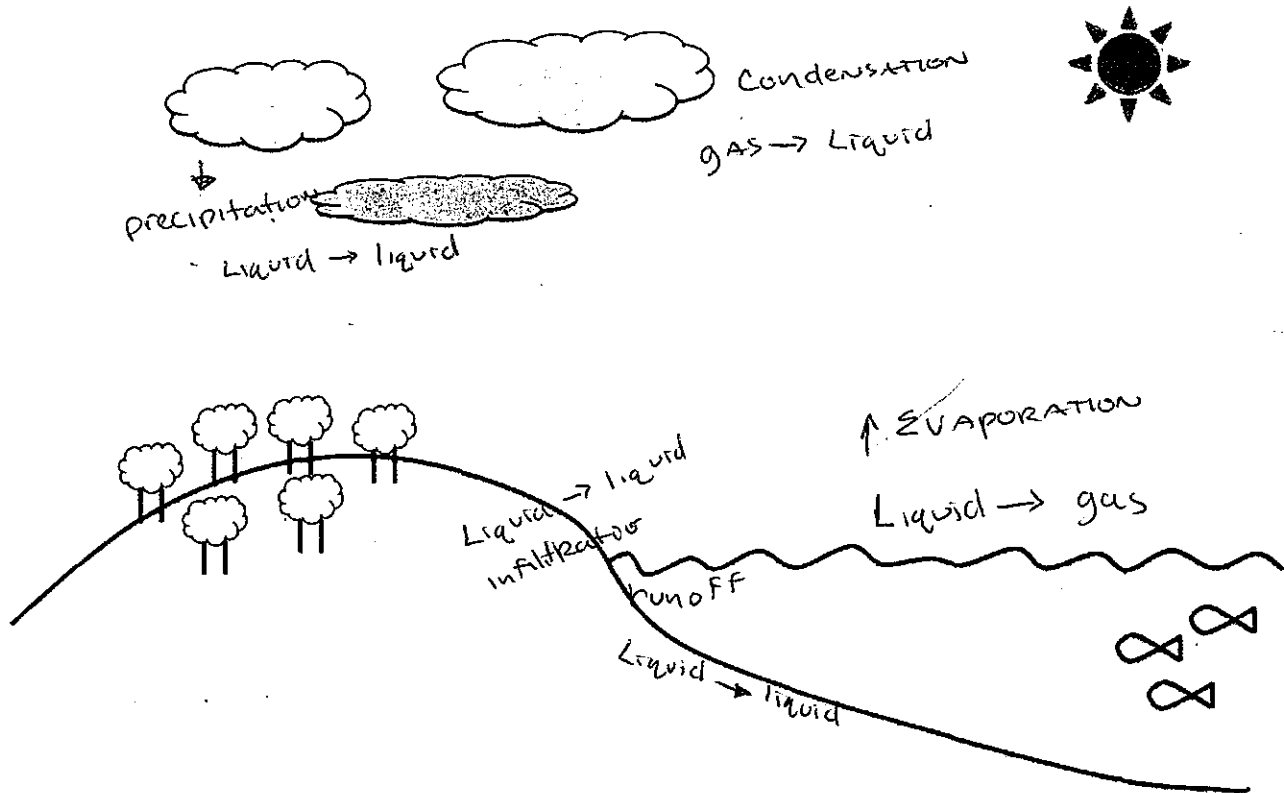 Condensation
gAS → Liquid
precipitation
Liquid → liquid
↑ EVAPORATION
Liquid → gas
Liquid → liquid
infiltratio
runoff
Liquid → liquid